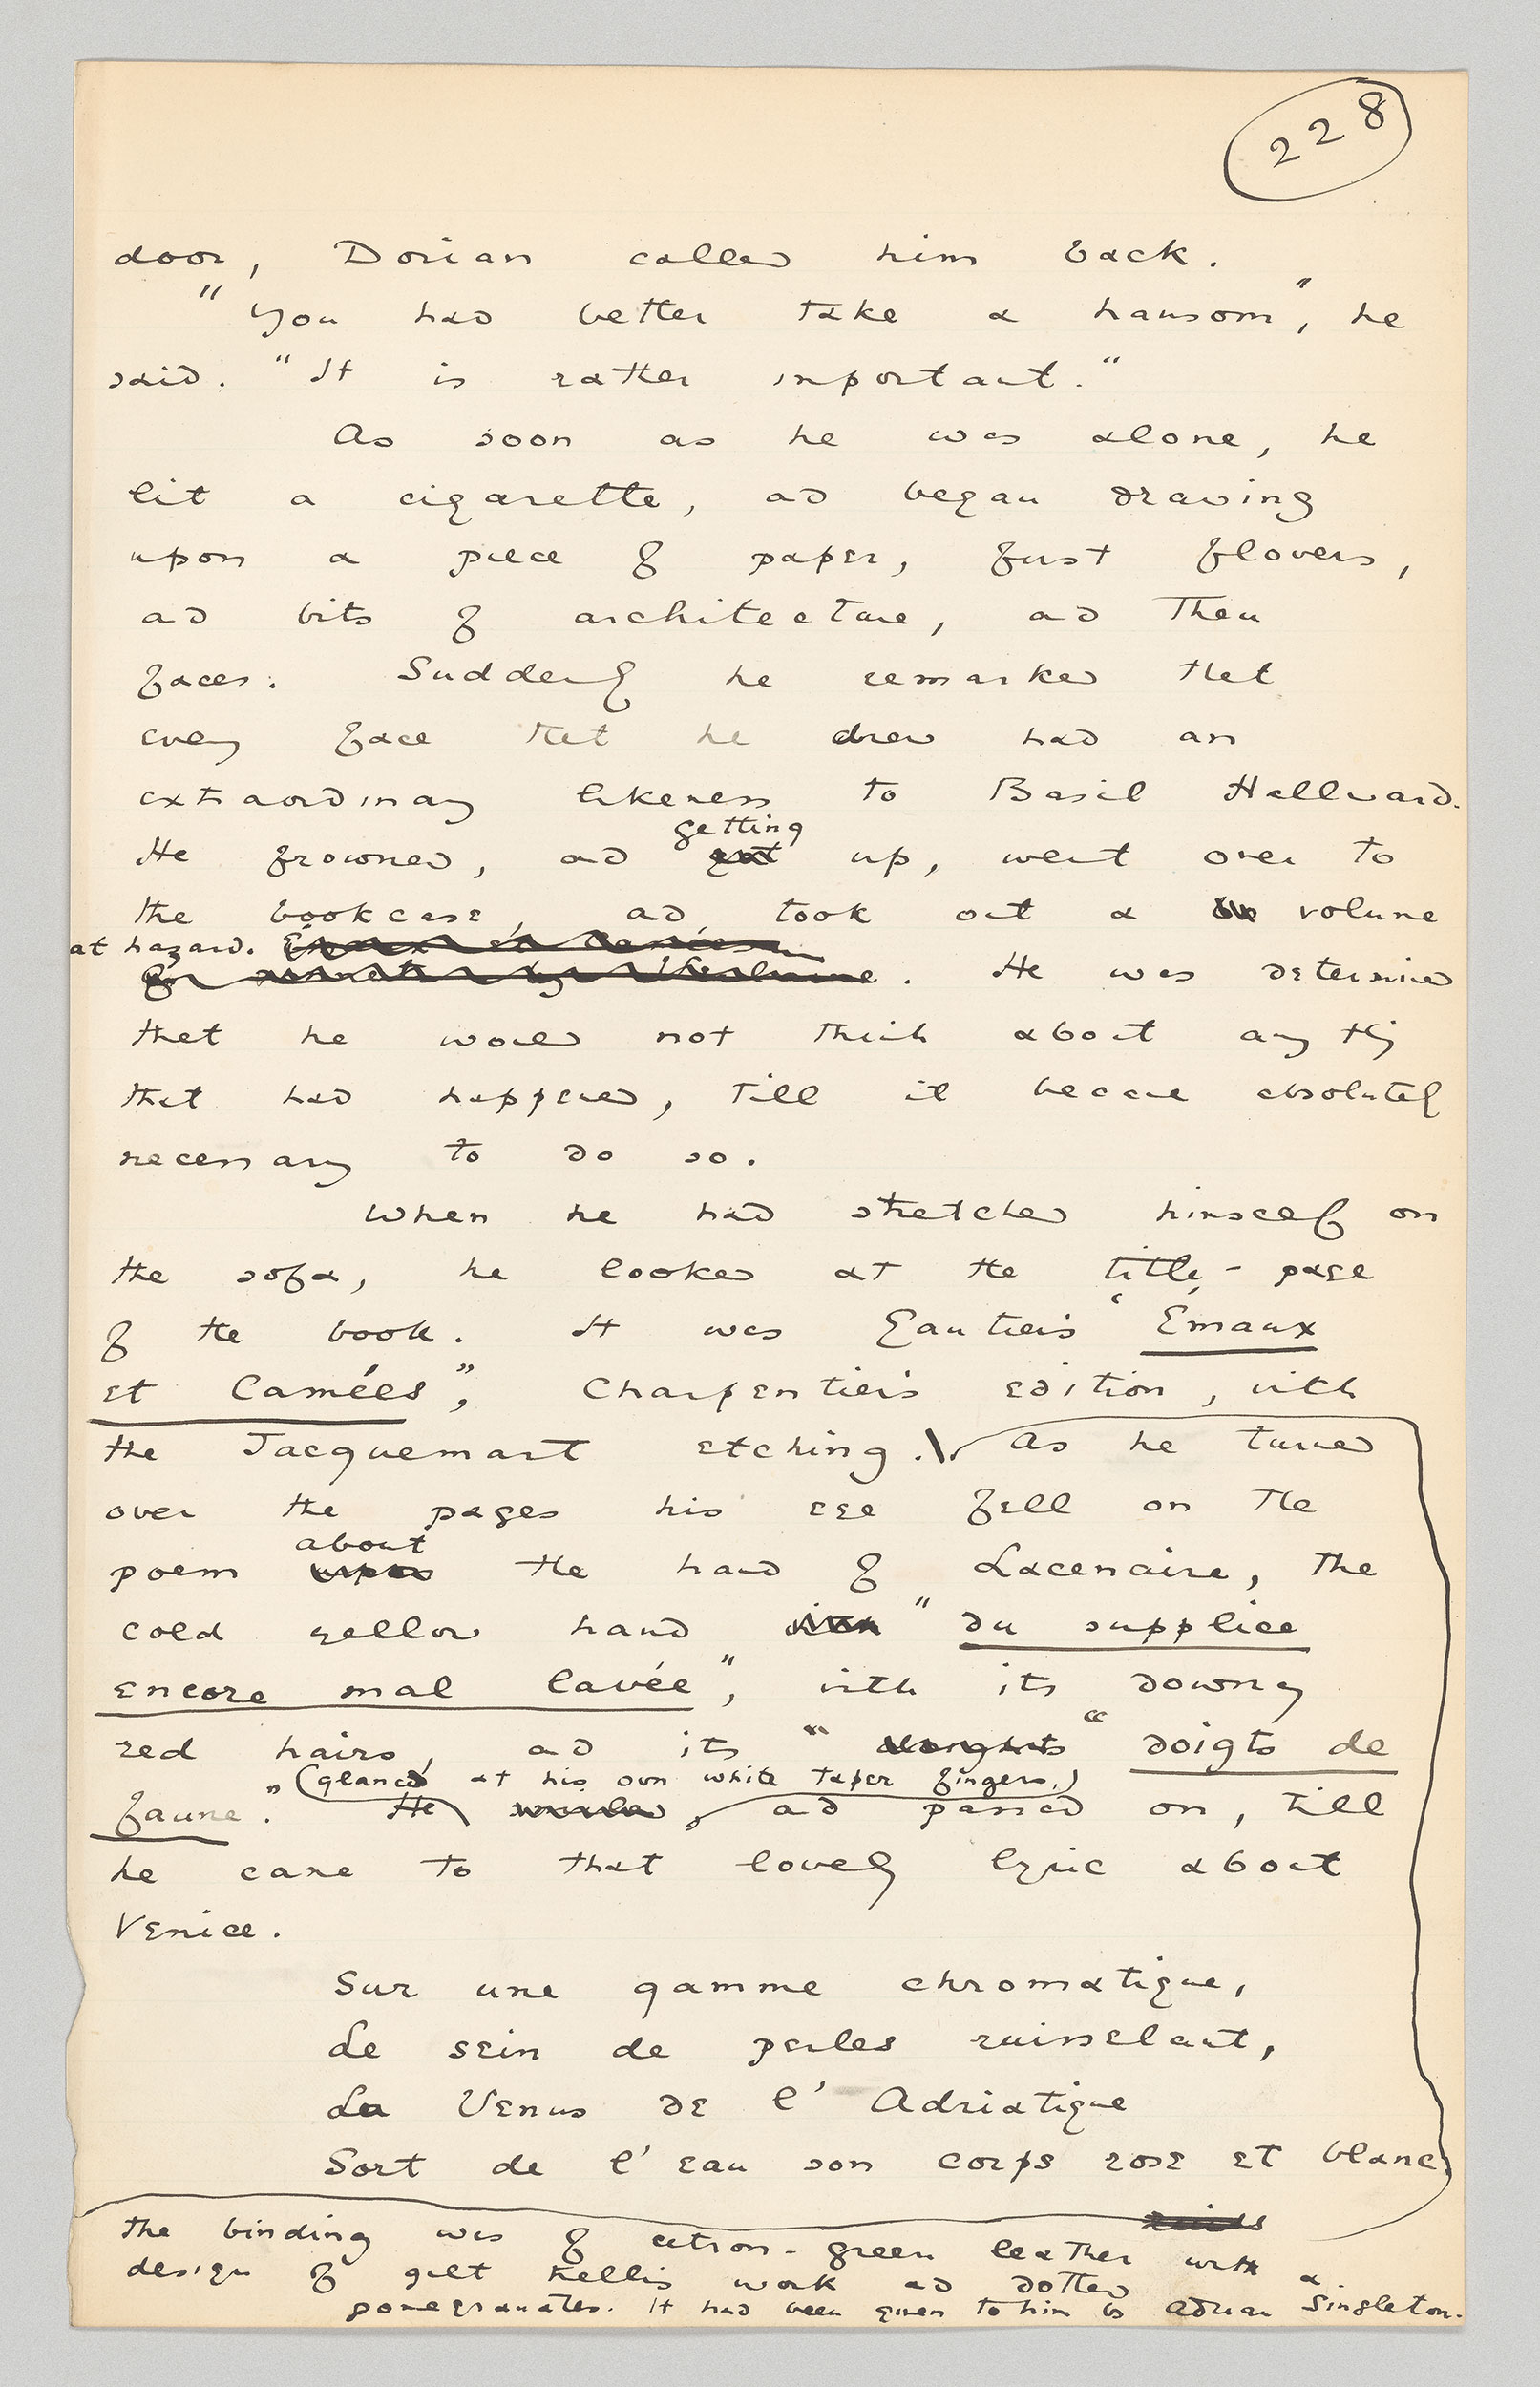 228
door, Dorian called him back.
"You had better take a hansom", he
said. "It is rather important."
As soon as he was alone, he
lit a cigarette, and began drawing
upon a piece of paper, first flowers,
and bits of architecture, and then
faces. Suddenly he remarked that
every face that he drew had an
extraordinary likeness to Basil Hallward.
getting
He frowned, and got up, went over to
the bookcase, and took out a volume
at hazard. Émaux et Camées
of sonnets by Verlaine. He was determined
that he would not think about any thing
that had happened, till it became absolutely
necessary to do so.
When he had stretched himself on
the sofa, he looked at the title-page
of the book. It was Gautier's 'Emaux
et Camées", Charpentier's edition, with
the Jacquemart etching. As he turned
over the pages his eye fell on the
about
poem upon the hand of Lacenaire, the
cold yellow hand "du supplice
encore mal lavée", with its downy
red hairs, and its " "doigts de
(glanced at his own white taper fingers,)
faune". He and passed on, till
he came to that lovely lyric about
Venice.
Sur une gamme chromatique,
Le sein de perles ruisselant,
La Venus de l'Adriatique
Sort de l'eau son corps rose et blanc.
the binding was of citron-green leather with a
design of gilt trellis work and dotted
pomegranates. It had been given to him by Adrian Singleton.